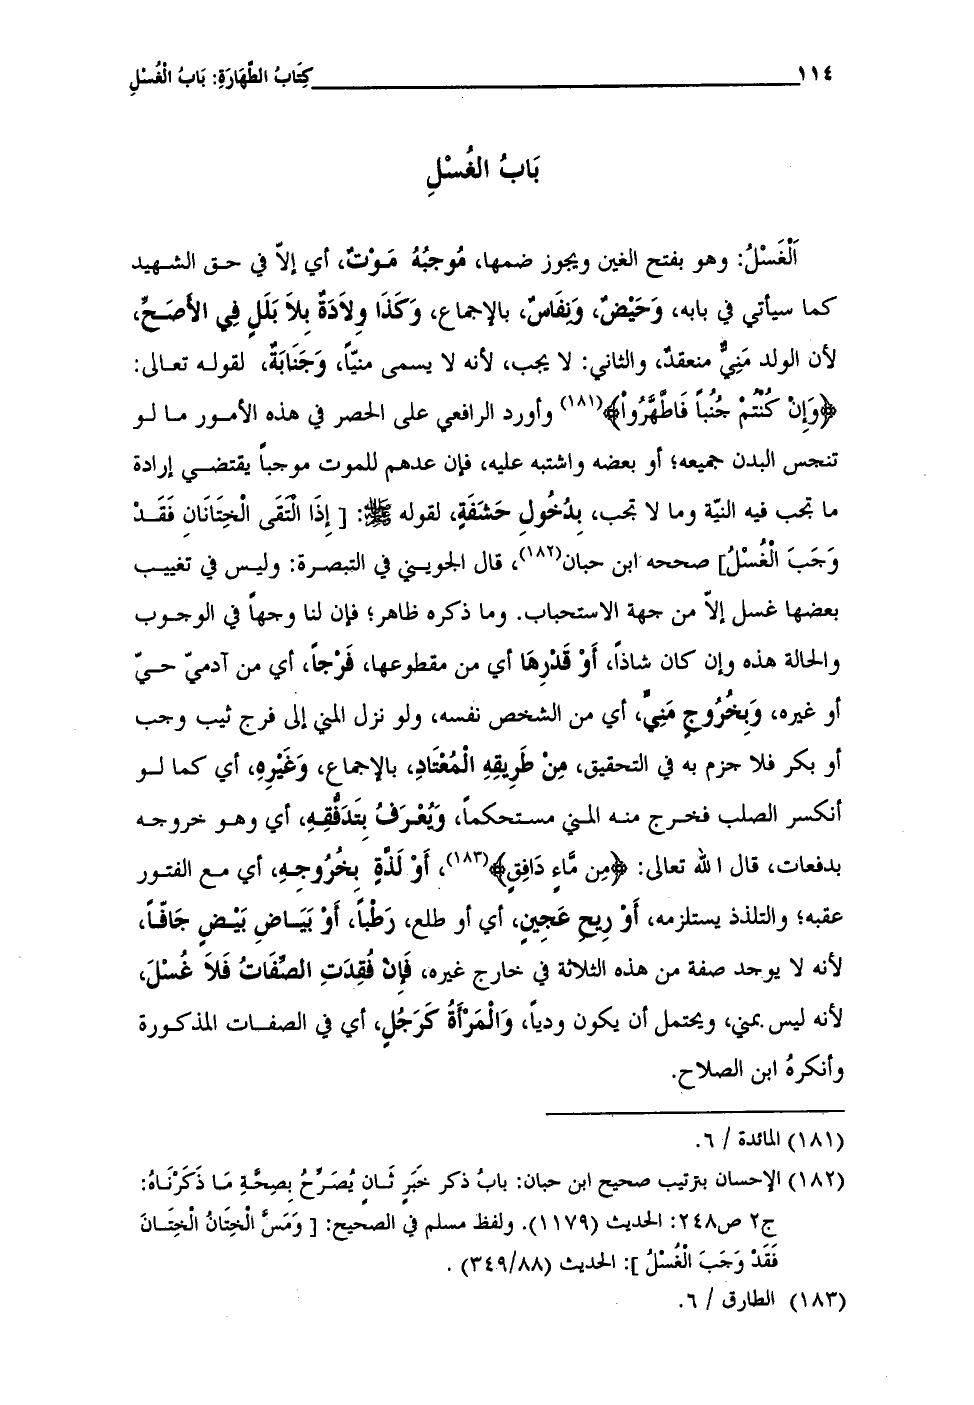 ١١٤ كِتَابُ الطَّهَارَةِ: بَابُ الْغُسْلِ
بَابُ الغُسْلِ
اَلْغَسْلُ: وهو بفتح الغين ويجوز ضمها، مُوجِبُهُ مَوْتٌ، أي إلاّ في حق الشهيد
كما سيأتي في بابه، وَحَيْضٌ، وَنِفَاسٌ، بالإجماع، وَكَذَا وِلاَدَةٌ بِلاَ بَلَلٍ فِي الأَصَحِّ،
لأن الولد مَنِيٌّ منعقدٌ، والثاني: لا يجب، لأنه لا يسمى منيّاً، وَجَنَابَةٌ، لقوله تعالى:
﴿وَإِنْ كُنْتُمْ جُنُباً فَاطَّهَّرُواْ﴾(١٨١) وأورد الرافعي على الحصر في هذه الأمور ما لو
تنجس البدن جميعه؛ أو بعضه واشتبه عليه، فإن عدهم للموت موجباً يقتضي إرادة
ما تجب فيه النيّة وما لا تجب، بِدُخُولِ حَشَفَةٍ، لقوله ﷺ: [ إِذَا الْتَقَى الْخِتَانَانِ فَقَدْ
وَجَبَ الْغُسْلُ] صححه ابن حبان(١٨٢)، قال الجويني في التبصرة: وليس في تغييب
بعضها غسل إلاّ من جهة الاستحباب. وما ذكره ظاهر؛ فإن لنا وجهاً في الوجوب
والحالة هذه وإن كان شاذاً، أَوْ قَدْرِهَا أي من مقطوعها، فَرْجاً، أي من آدميّ حيّ
أو غيره، وَبِخُرُوجِ مَنِيٍّ، أي من الشخص نفسه، ولو نزل المني إلى فرج ثيب وجب
أو بكر فلا جزم به في التحقيق، مِنْ طَرِيقِهِ الْمُعْتَادِ، بالإجماع، وَغَيْرِهِ، أي كما لو
أنكسر الصلب فخرج منه المني مستحكماً، وَيُعْرَفُ بِتَدَفُّقِهِ، أي وهو خروجه
بدفعات، قال ا لله تعالى: ﴿مِن مَّاءٍ دَافِقٍ﴾(١٨٣)، أَوْ لَذَّةٍ بِخُرُوجِهِ، أي مع الفتور
عقبه؛ والتلذذ يستلزمه، أَوْ رِيحِ عَجِينٍ، أي أو طلع، رَطْباً، أَوْ بَيَاضِ بَيْضٍ جَافّاً،
لأنه لا يوجد صفة من هذه الثلاثة في خارج غيره، فَإِنْ فُقِدَتِ الصِّفَاتُ فَلاَ غُسْلَ،
لأنه ليس بمني، ويحتمل أن يكون ودياً، وَالْمَرْأَةُ كَرَجُلٍ، أي في الصفات المذكورة
وأنكرهُ ابن الصلاح.
(١٨١) المائدة / ٦.
(١٨٢) الإحسان بترتيب صحيح ابن حبان: بابُ ذكر خَبَرٍ ثَانٍ يُصَرِّحُ بِصِحَّةِ مَا ذَكَرْنَاهُ:
ج٢ ص٢٤٨: الحديث (١١٧٩). ولفظ مسلم في الصحيح: [ وَمَسَّ الْخِتَانُ الْخِتَانَ
فَقَدْ وَجَبَ الْغُسْلُ ]: الحديث (٣٤٩/٨٨) .
(١٨٣) الطارق / ٦.